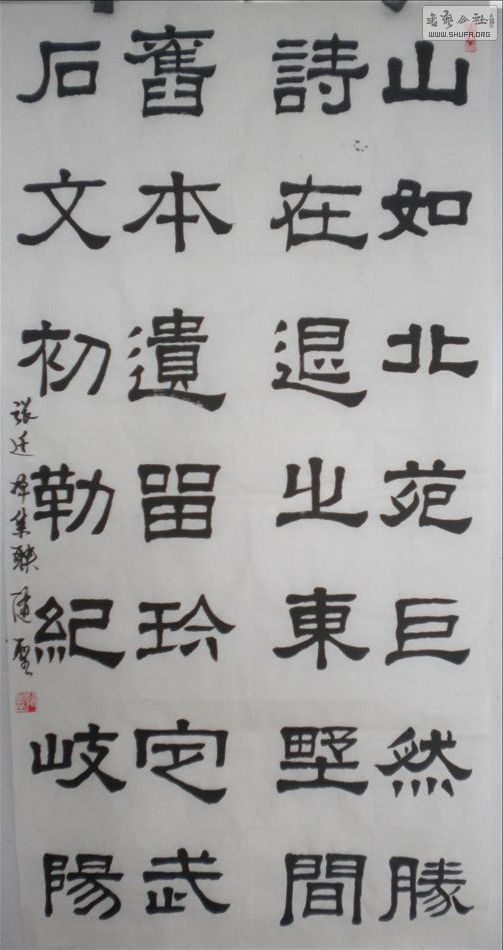 山如北苑巨然勝
詩在退之東野間
舊本遺留珍定武
石文初勒紀岐陽
張迁碑集联
书艺公社
WWW.SHUFR.ORG